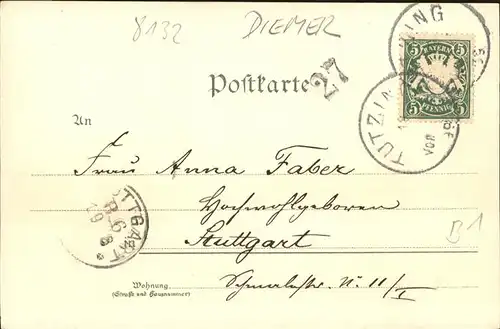 8132
DIEMER
BAYERN
5 5
PFENNIG
TUTZIN
VOR
ING
Postkarte
27
An
Frau Anna Faber
Hochwohlgeboren
Stuttgart
B1
TTGART
Wohnung
(Straße und Hausnummer)
N. 11/I